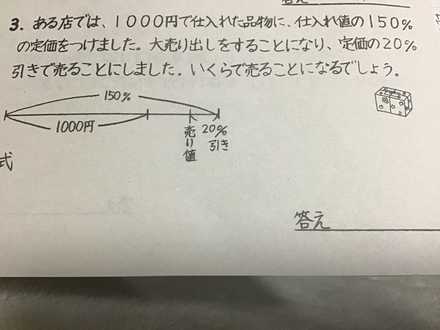 3. ある店では、1000円で仕入れた品物に、仕入れ値の150%
の定価をつけました。大売り出しをすることになり、定価の20%
引きで売ることにしました。いくらで売ることになるでしょう。
150%
1000円
売り値
20%引き
式
答え